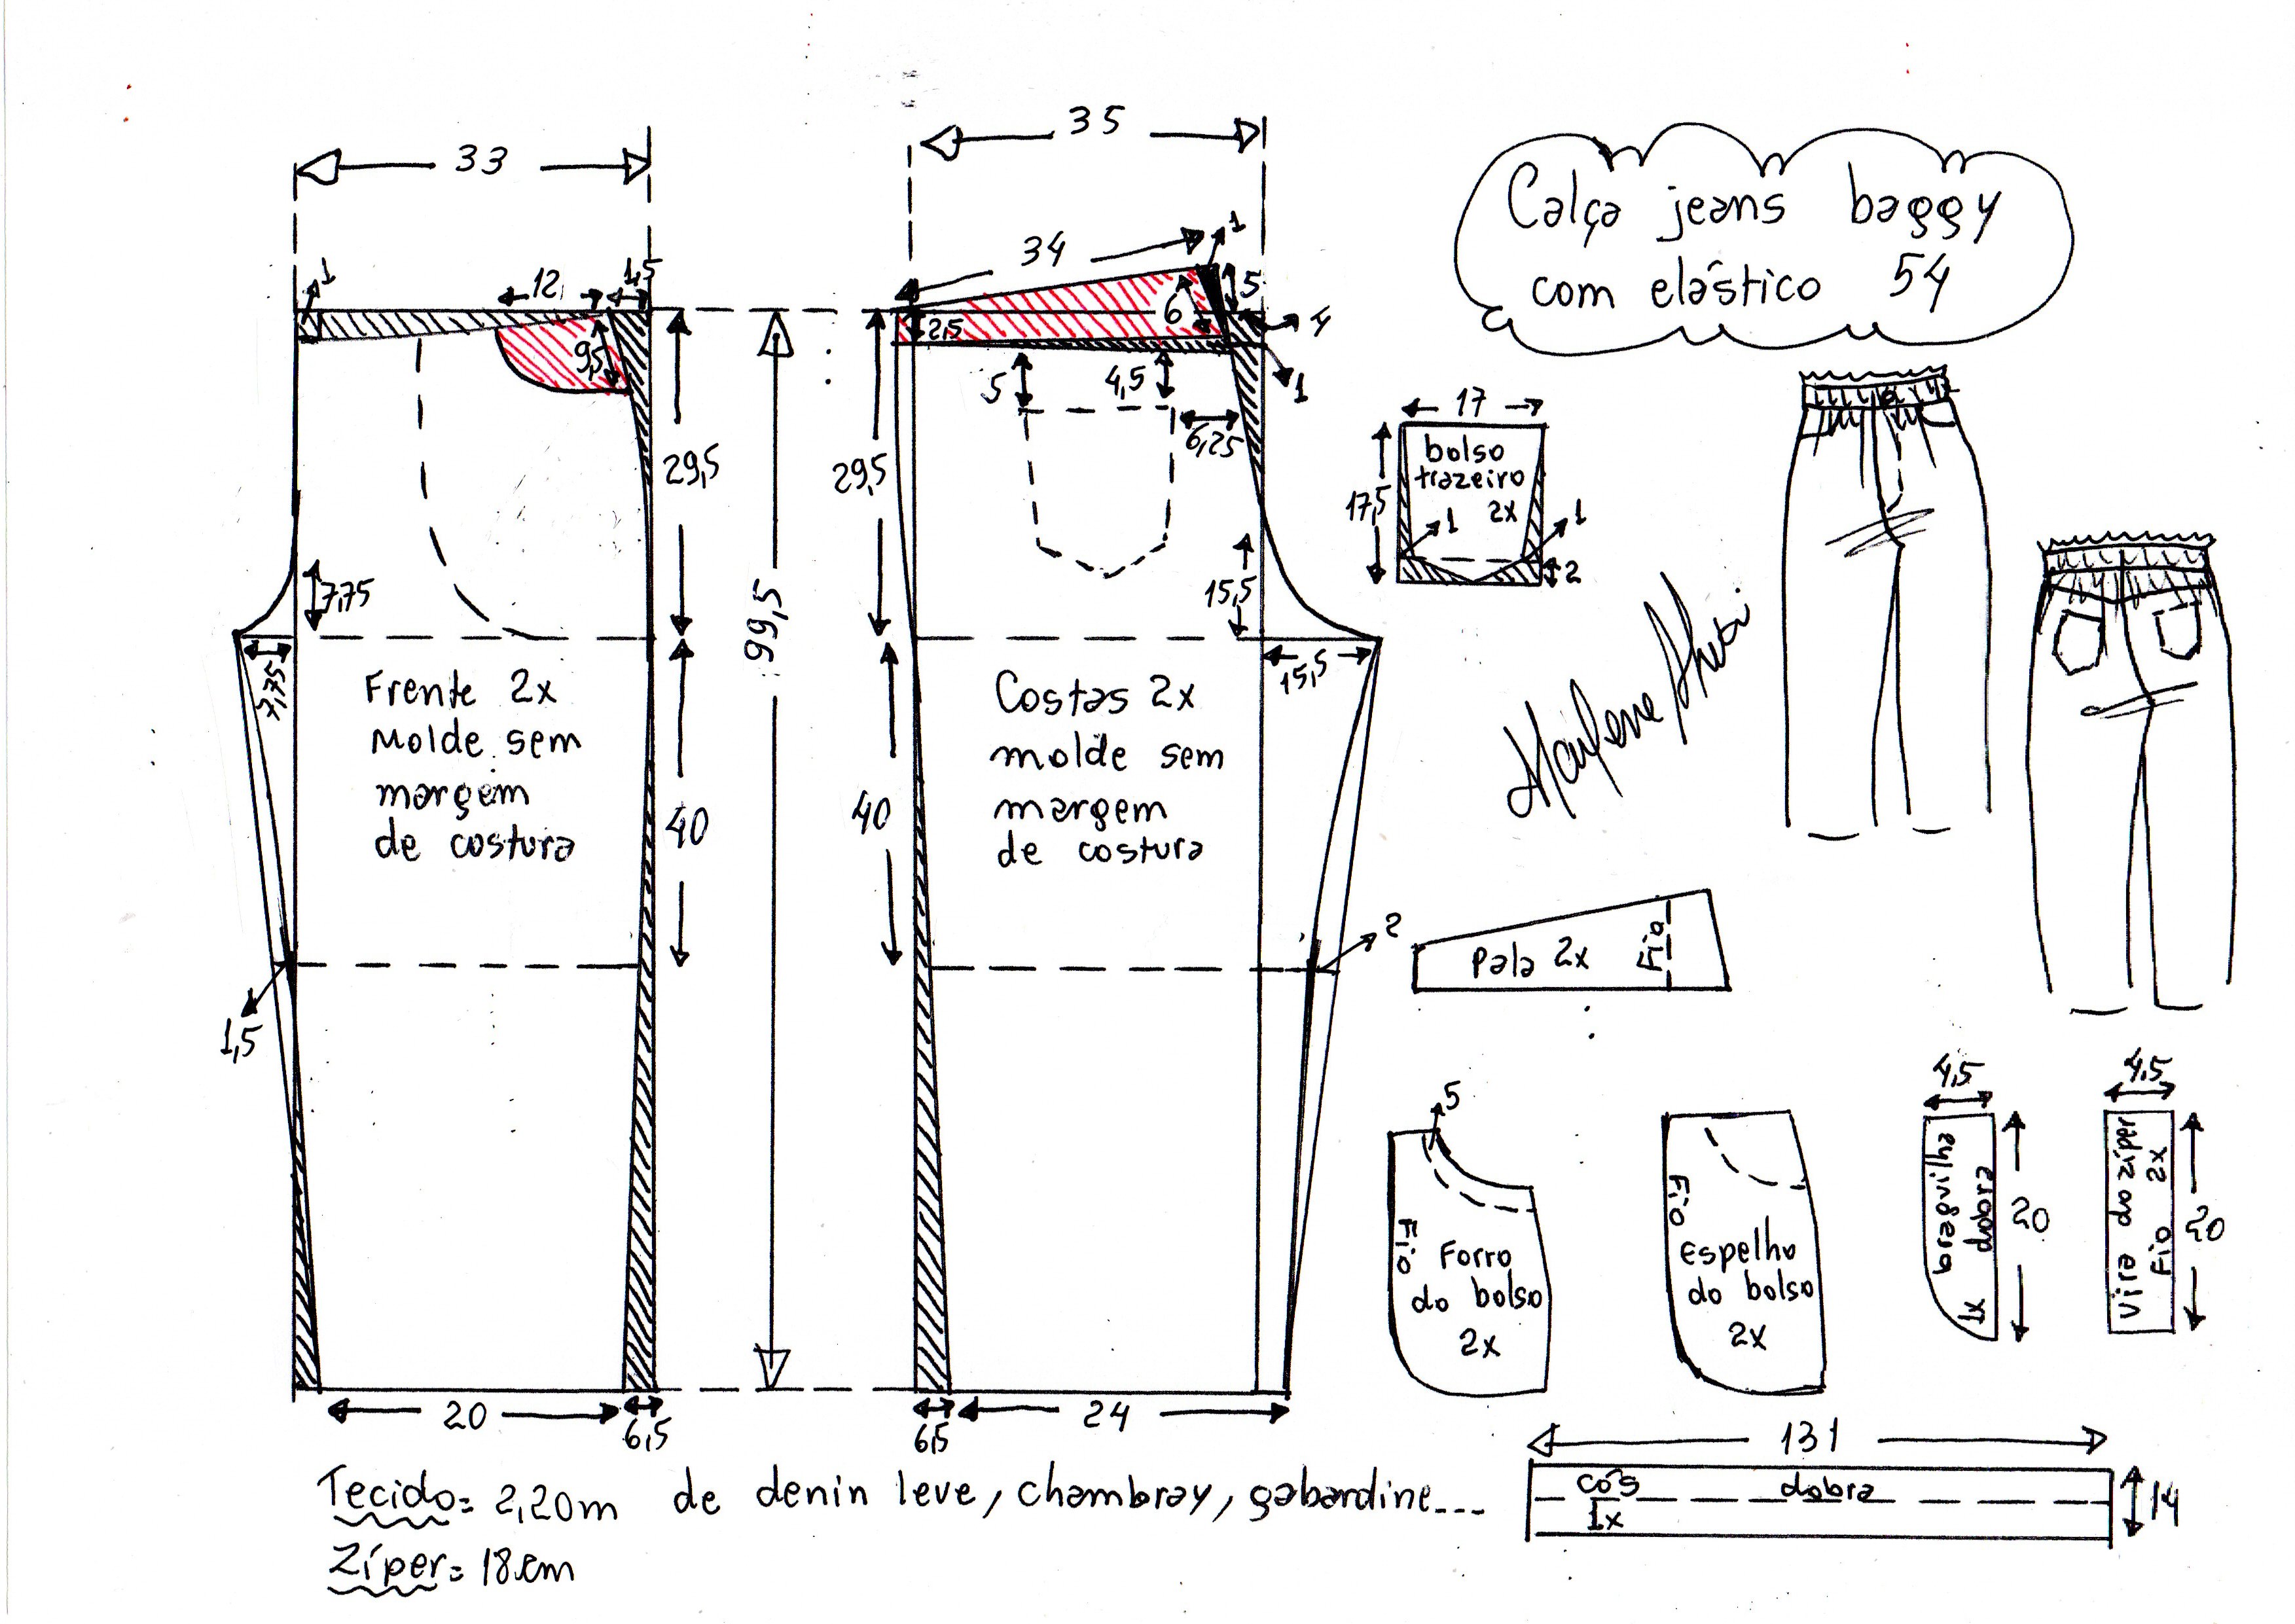 33
35
Calça jeans baggy
com elástico 54
1
12
1,5
34
1
5
6
4
2,5
9,5
5
4,5
1
6,25
29,5
29,5
99,5
7,75
7,75
15,5
15,5
17
17,5
bolso
trazeiro
2x
1
1
2
Frente 2x
Molde sem
margem
de costura
40
Costas 2x
molde sem
margem
de costura
40
1,5
2
Pala 2x
Fio
5
Fio
Forro
do bolso
2x
Fio
Espelho
do bolso
2x
4,5
braguilha
dobra
1x
20
4,5
Vira do zíper
Fio 2x
20
20
6,5
6,5
24
131
cós
dobra
1x
14
Tecido= 2,20m de denin leve, chambray, gabardine...
Zíper= 18cm